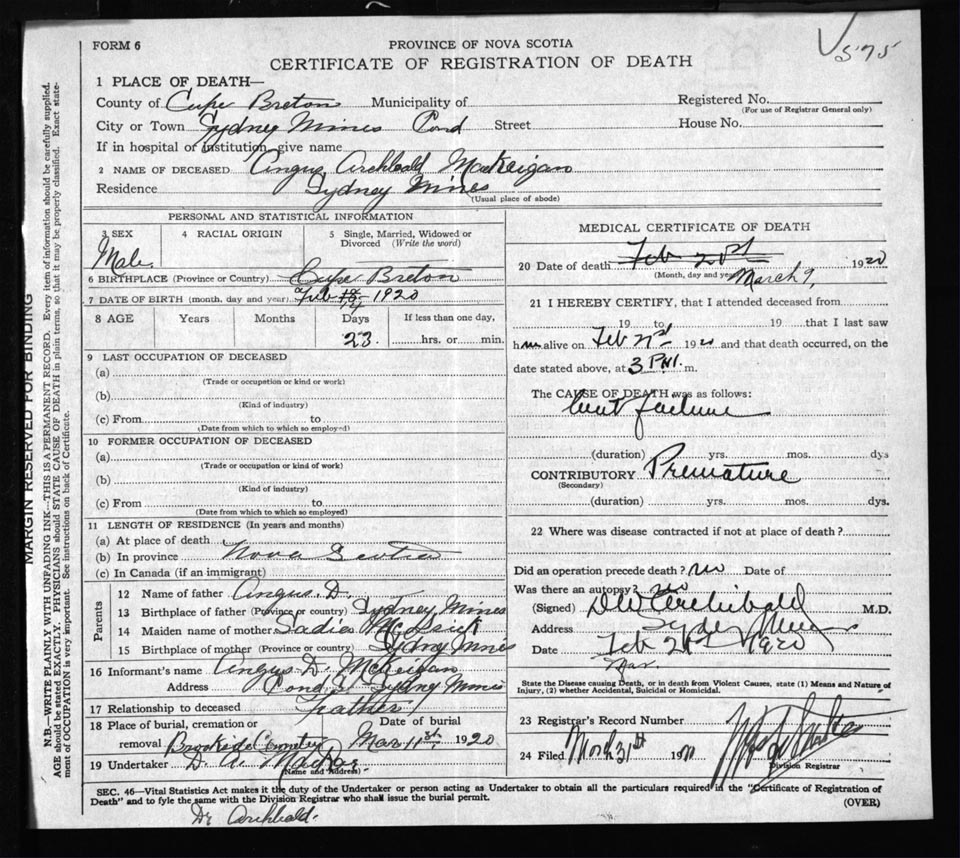 FORM 6
575
PROVINCE OF NOVA SCOTIA
CERTIFICATE OF REGISTRATION OF DEATH
1 PLACE OF DEATH—
County of Cape Breton Municipality of
Registered No.
(For use of Registrar General only)
City or Town Sydney Mines Pond Street House No.
If in hospital or institution, give name
2 NAME OF DECEASED Angus Archbald MacKeigan
Residence Sydney Mines
(Usual place of abode)
PERSONAL AND STATISTICAL INFORMATION
3 SEX
Male
4 RACIAL ORIGIN
5 Single, Married, Widowed or Divorced (Write the word)
6 BIRTHPLACE (Province or Country) Cape Breton
7 DATE OF BIRTH (month, day and year) Feb 1920
8 AGE Years Months Days If less than one day,
23 hrs. or min.
9 LAST OCCUPATION OF DECEASED
(a)
(Trade or occupation or kind or work)
(b)
(Kind of industry)
(c) From to
(Date from which to which so employed)
10 FORMER OCCUPATION OF DECEASED
(a)
(Trade or occupation or kind of work)
(b)
(Kind of industry)
(c) From to
(Date from which to which so employed)
11 LENGTH OF RESIDENCE (In years and months)
(a) At place of death
(b) In province Nova Scotia
(c) In Canada (if an immigrant)
Parents
12 Name of father Angus. D.
13 Birthplace of father (Province or country) Sydney Mines
14 Maiden name of mother Sadie
15 Birthplace of mother (Province or country) Sydney Mines
16 Informant's name Angus D. McKeigan
Address Pond St Sydney Mines
17 Relationship to deceased Father
18 Place of burial, cremation or Date of burial
removal Brookside Cemetery Mar 11th 1920
19 Undertaker D. A.
(Name and Address)
MEDICAL CERTIFICATE OF DEATH
20 Date of death Feb 1920
(Month, day and year) March 9,
21 I HEREBY CERTIFY, that I attended deceased from
19 to 19 that I last saw
him alive on Feb 1920 and that death occurred, on the
date stated above, at 3 P.M. m.
The CAUSE OF DEATH was as follows:
heart failure
(duration) yrs. mos. dys
CONTRIBUTORY Premature
(Secondary)
(duration) yrs. mos. dys.
22 Where was disease contracted if not at place of death?
Did an operation precede death? no Date of
Was there an autopsy? no
(Signed) Archibald M.D.
Address Sydney Mines
Date Feb 21st 1920
Mar.
State the Disease causing Death, or in death from Violent Causes, state (1) Means and Nature of
Injury, (2) whether Accidental, Suicidal or Homicidal.
23 Registrar's Record Number
24 Filed March 31st 19
Division Registrar
SEC. 46—Vital Statistics Act makes it the duty of the Undertaker or person acting as Undertaker to obtain all the particulars required in the "Certificate of Registration of
Death" and to fyle the same with the Division Registrar who shall issue the burial permit.
(OVER)
Dr Archbald.
MARGIN RESERVED FOR BINDING
N.B.—WRITE PLAINLY WITH UNFADING INK—THIS IS A PERMANENT RECORD. Every item of information should be carefully supplied.
AGE should be stated EXACTLY. PHYSICIANS should STATE CAUSE OF DEATH in plain terms, so that it may be properly classified. Exact state-
ment of OCCUPATION is very important. See instructions on back of Certificate.